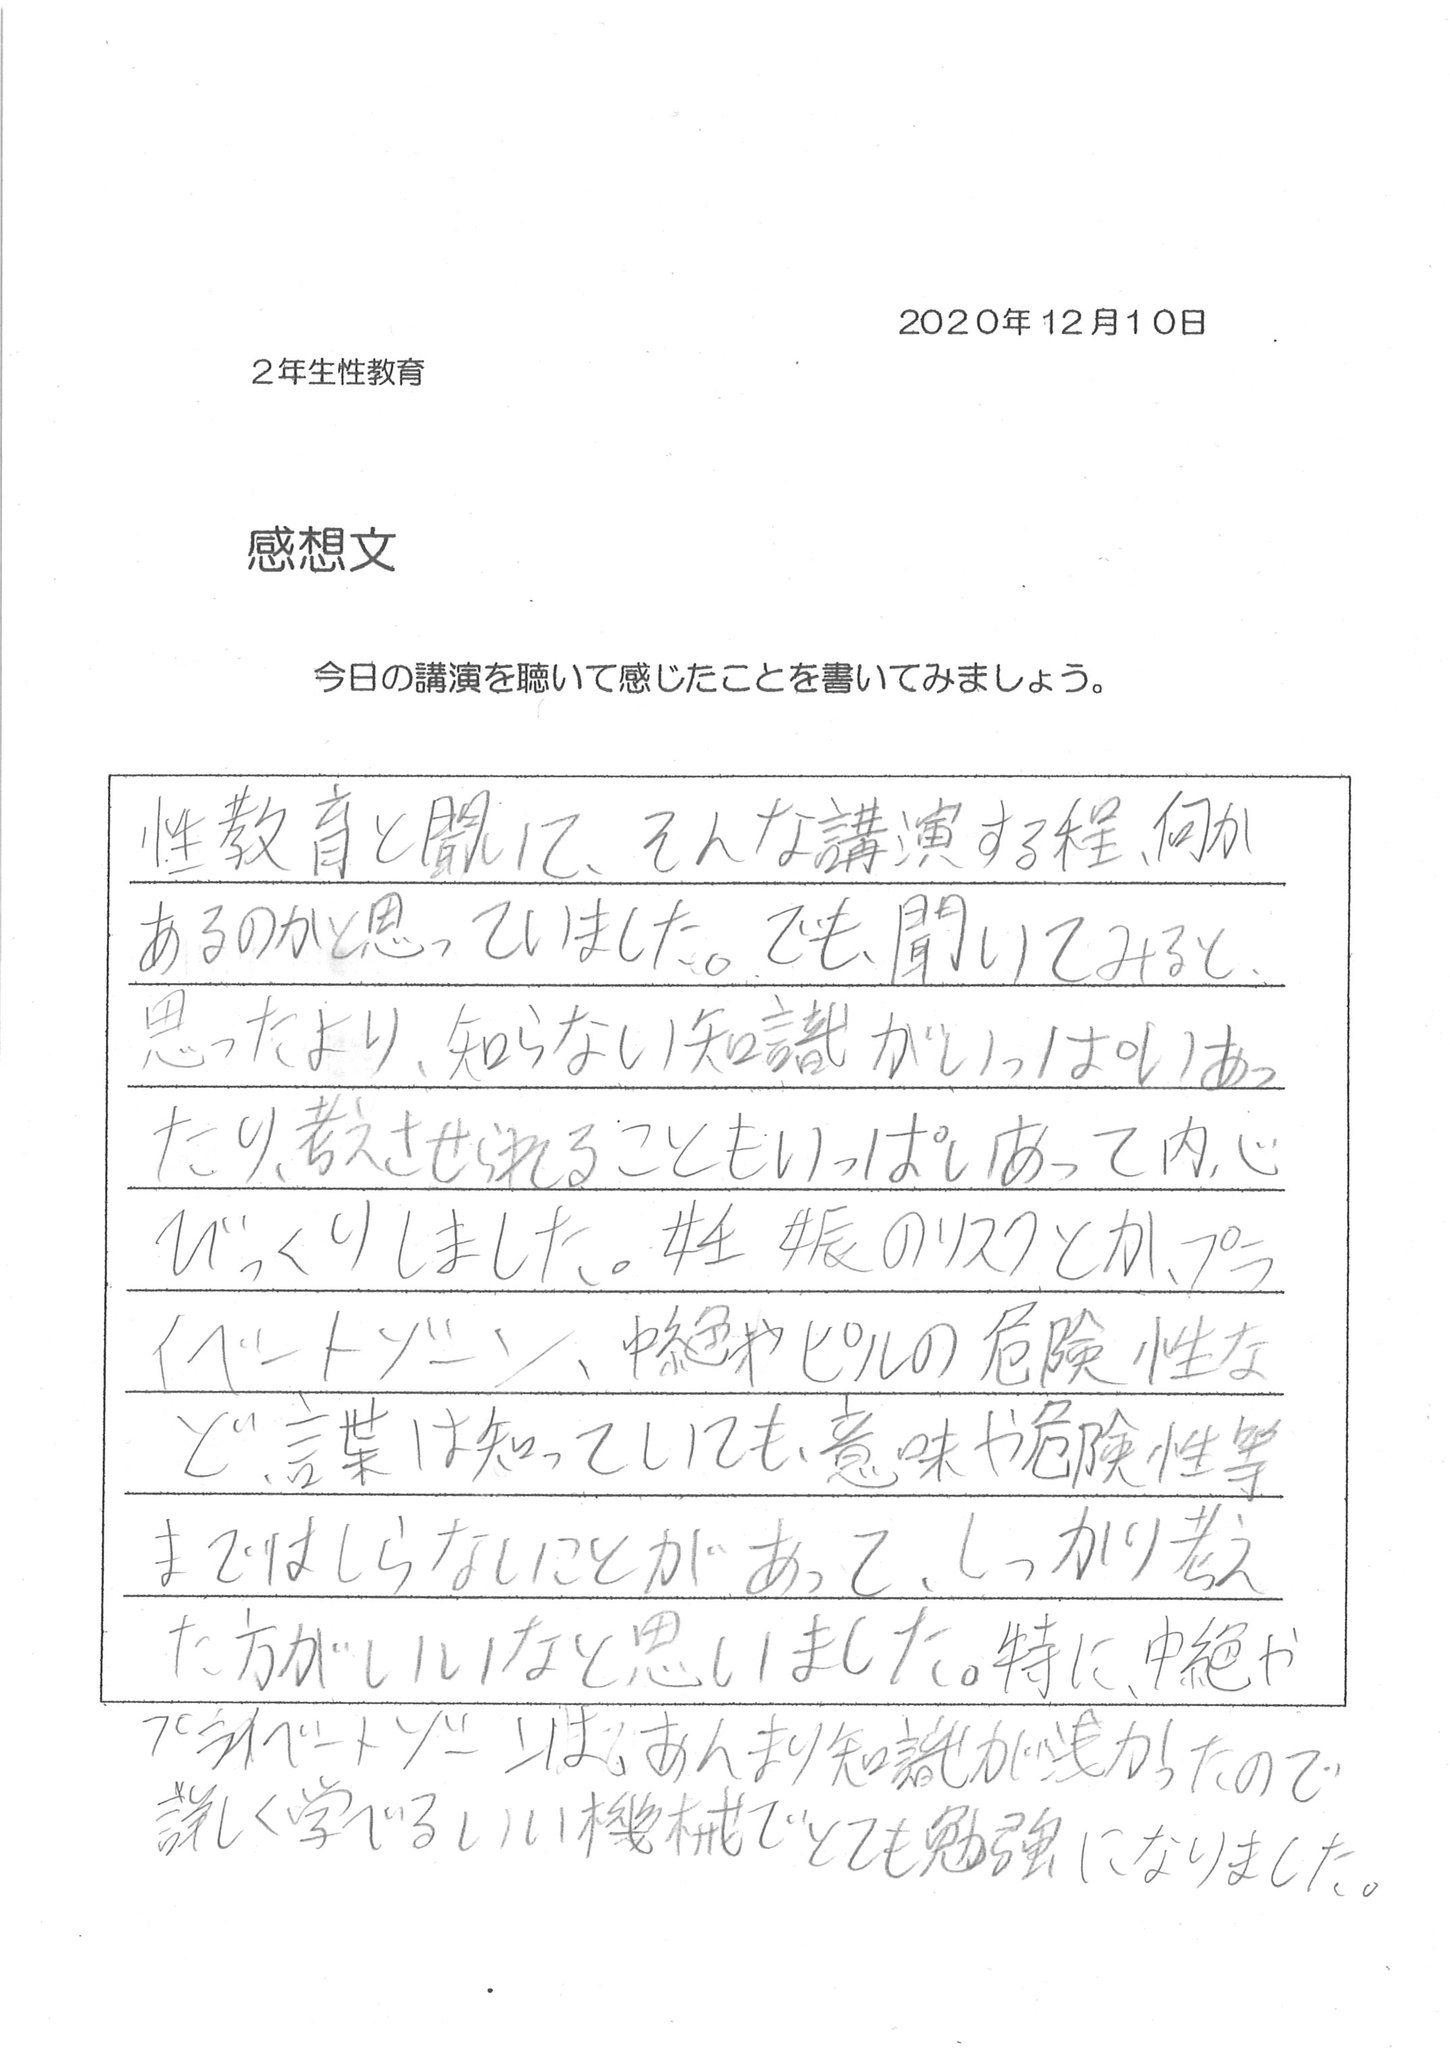 2020年12月10日
2年生性教育
感想文
今日の講演を聴いて感じたことを書いてみましょう。
性教育と聞いて、そんな講演する程、何か
あるのかと思っていました。でも、聞いてみると、
思ったより、知らない知識がいっぱいあっ
たり、考えさせられることもいっぱいあって内心
びっくりしました。妊娠のリスクとか、プラ
イベートゾーン、中絶やピルの危険性な
ど、言葉は知っていても、意味や危険性等
まではしらないことがあって、しっかり考え
た方がいいなと思いました。特に、中絶や
プライベートゾーンは、あんまり知識が浅かったので
詳しく学べるいい機械でとても勉強になりました。